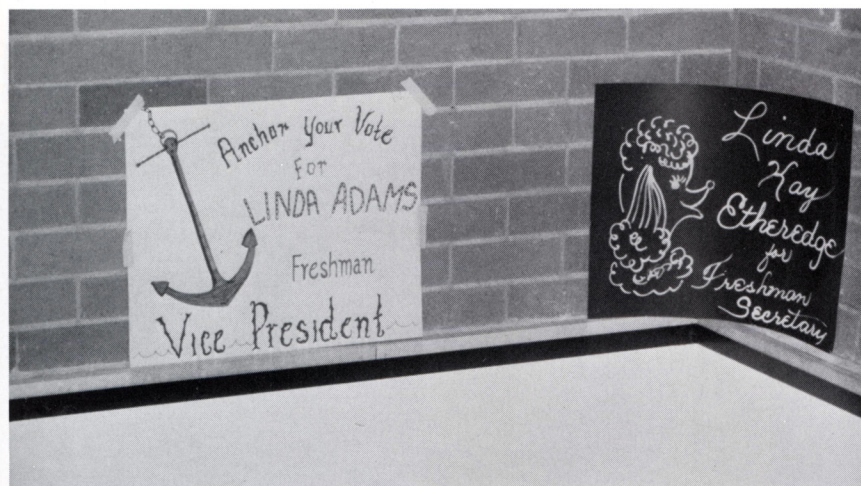 Anchor Your Vote
For
LINDA ADAMS
Freshman
Vice President
Linda
Kay
Etheredge
for
Freshman
Secretary